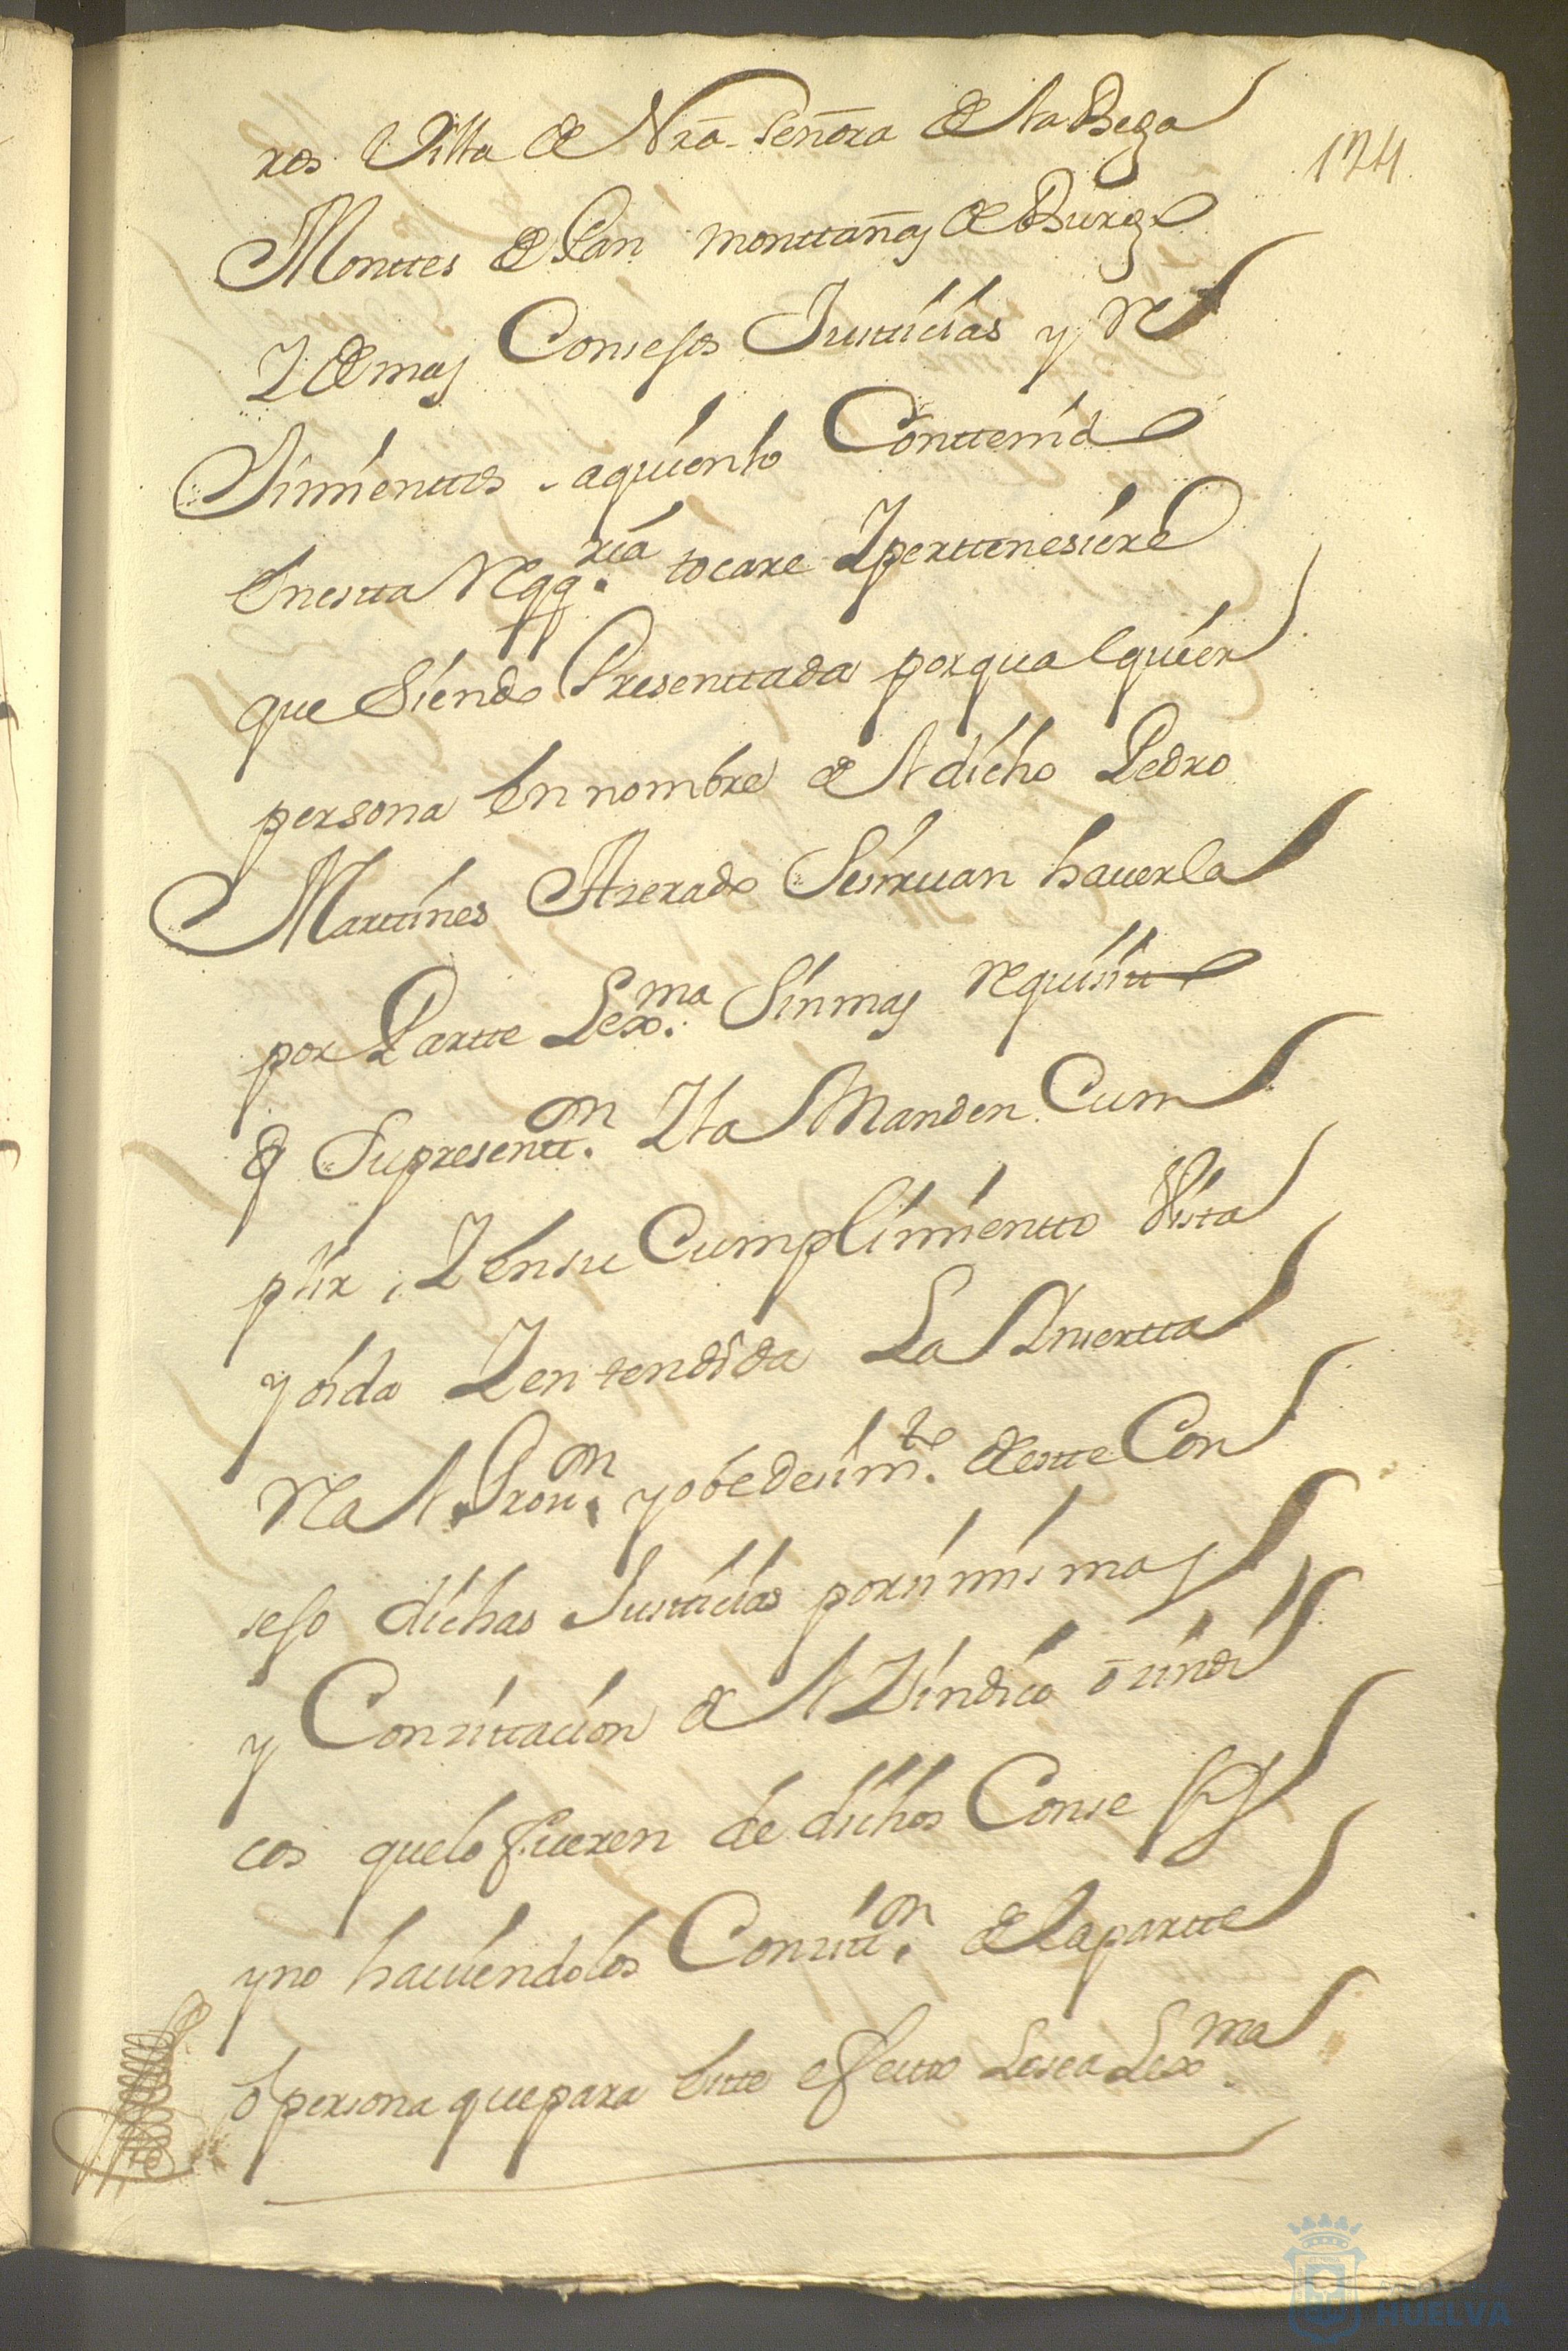 124
ros Villa de Nrã Señora de la Bega
Monttes de Pan monttañas de Burgo
Y demas Consejos Justticias y Re
Jimienttos a quien lo Conttenido
En estta Reqq.ria tocare Y perttenesiere
que Siendo Presenttada por qualquier
persona En nombre del dicho Pedro
Marttines Azerado Se sirvan haverla
por Partte Lex.ma Sin mas requisitto
q Su presentt.on Y la Manden Cum
plir, Y En su Cumplimientto Vista
y oida Y entendida La Ynsertta
Real Prov.on y obedesim.to de estte Con
sejo dichas Justticias por si mismas
y Conzittacion del Zindico õ sindi
cos que lo fueren de dichos Consejos
y no haviendolos Conzitt.on de la partte
õ persona que para Estte efectto Lesea Lex.ma
HUELVA